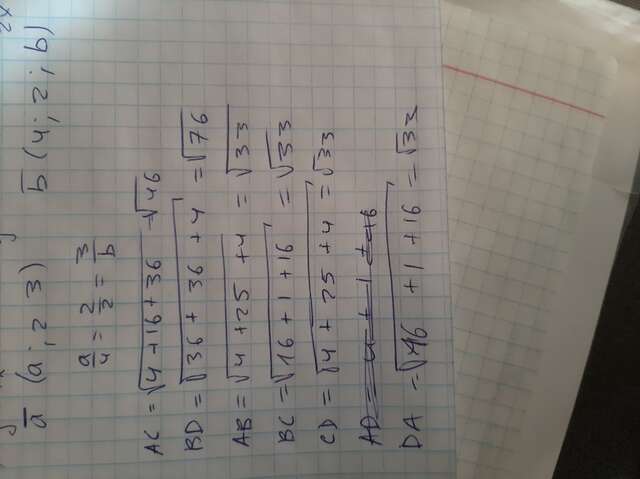 a̅ (a; 2 3) b̅ (4; 2; b)
a/4 = 2/2 = 3/b
AC = √4+16+36 - √46
BD = √36+36+4 = √76
AB = √4+25+4 = √33
BC = √16+1+16 = √33
CD = √4+25+4 = √33
DA = √16+1+16 = √33